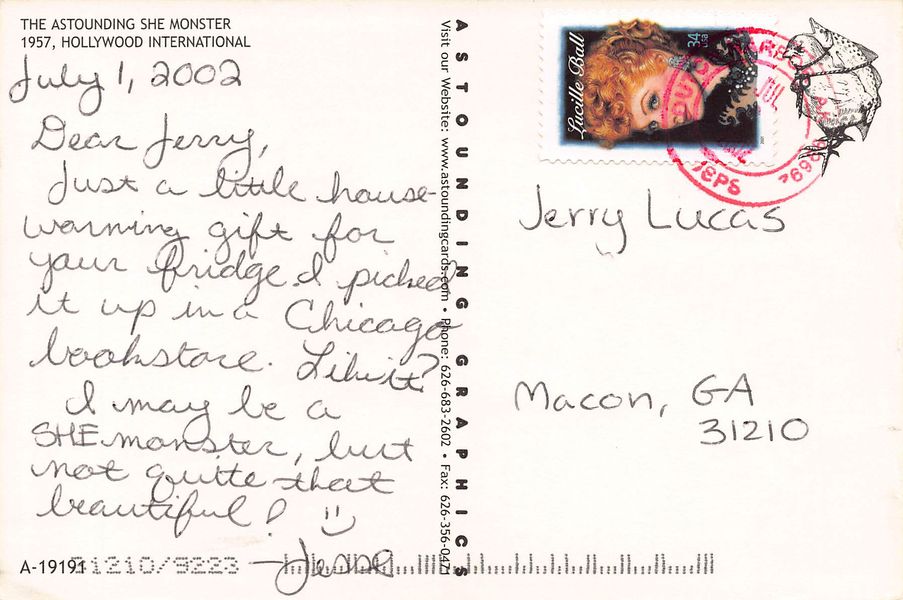 THE ASTOUNDING SHE MONSTER
1957, HOLLYWOOD INTERNATIONAL
July 1, 2002
Dear Jerry,
Just a little house-
warming gift for
your fridge. I picked
it up in a Chicago
bookstore. Like it?
I may be a
SHE monster, but
not quite that
beautiful!
A-19191
31210/9223
ASTOUNDING GRAPHICS
Visit our Website: www.astoundingcards.com • Phone: 626-683-2602 • Fax: 626-356-0471
Lucille Ball
34
USA
JUL
USPS
Jerry Lucas
Macon, GA
31210